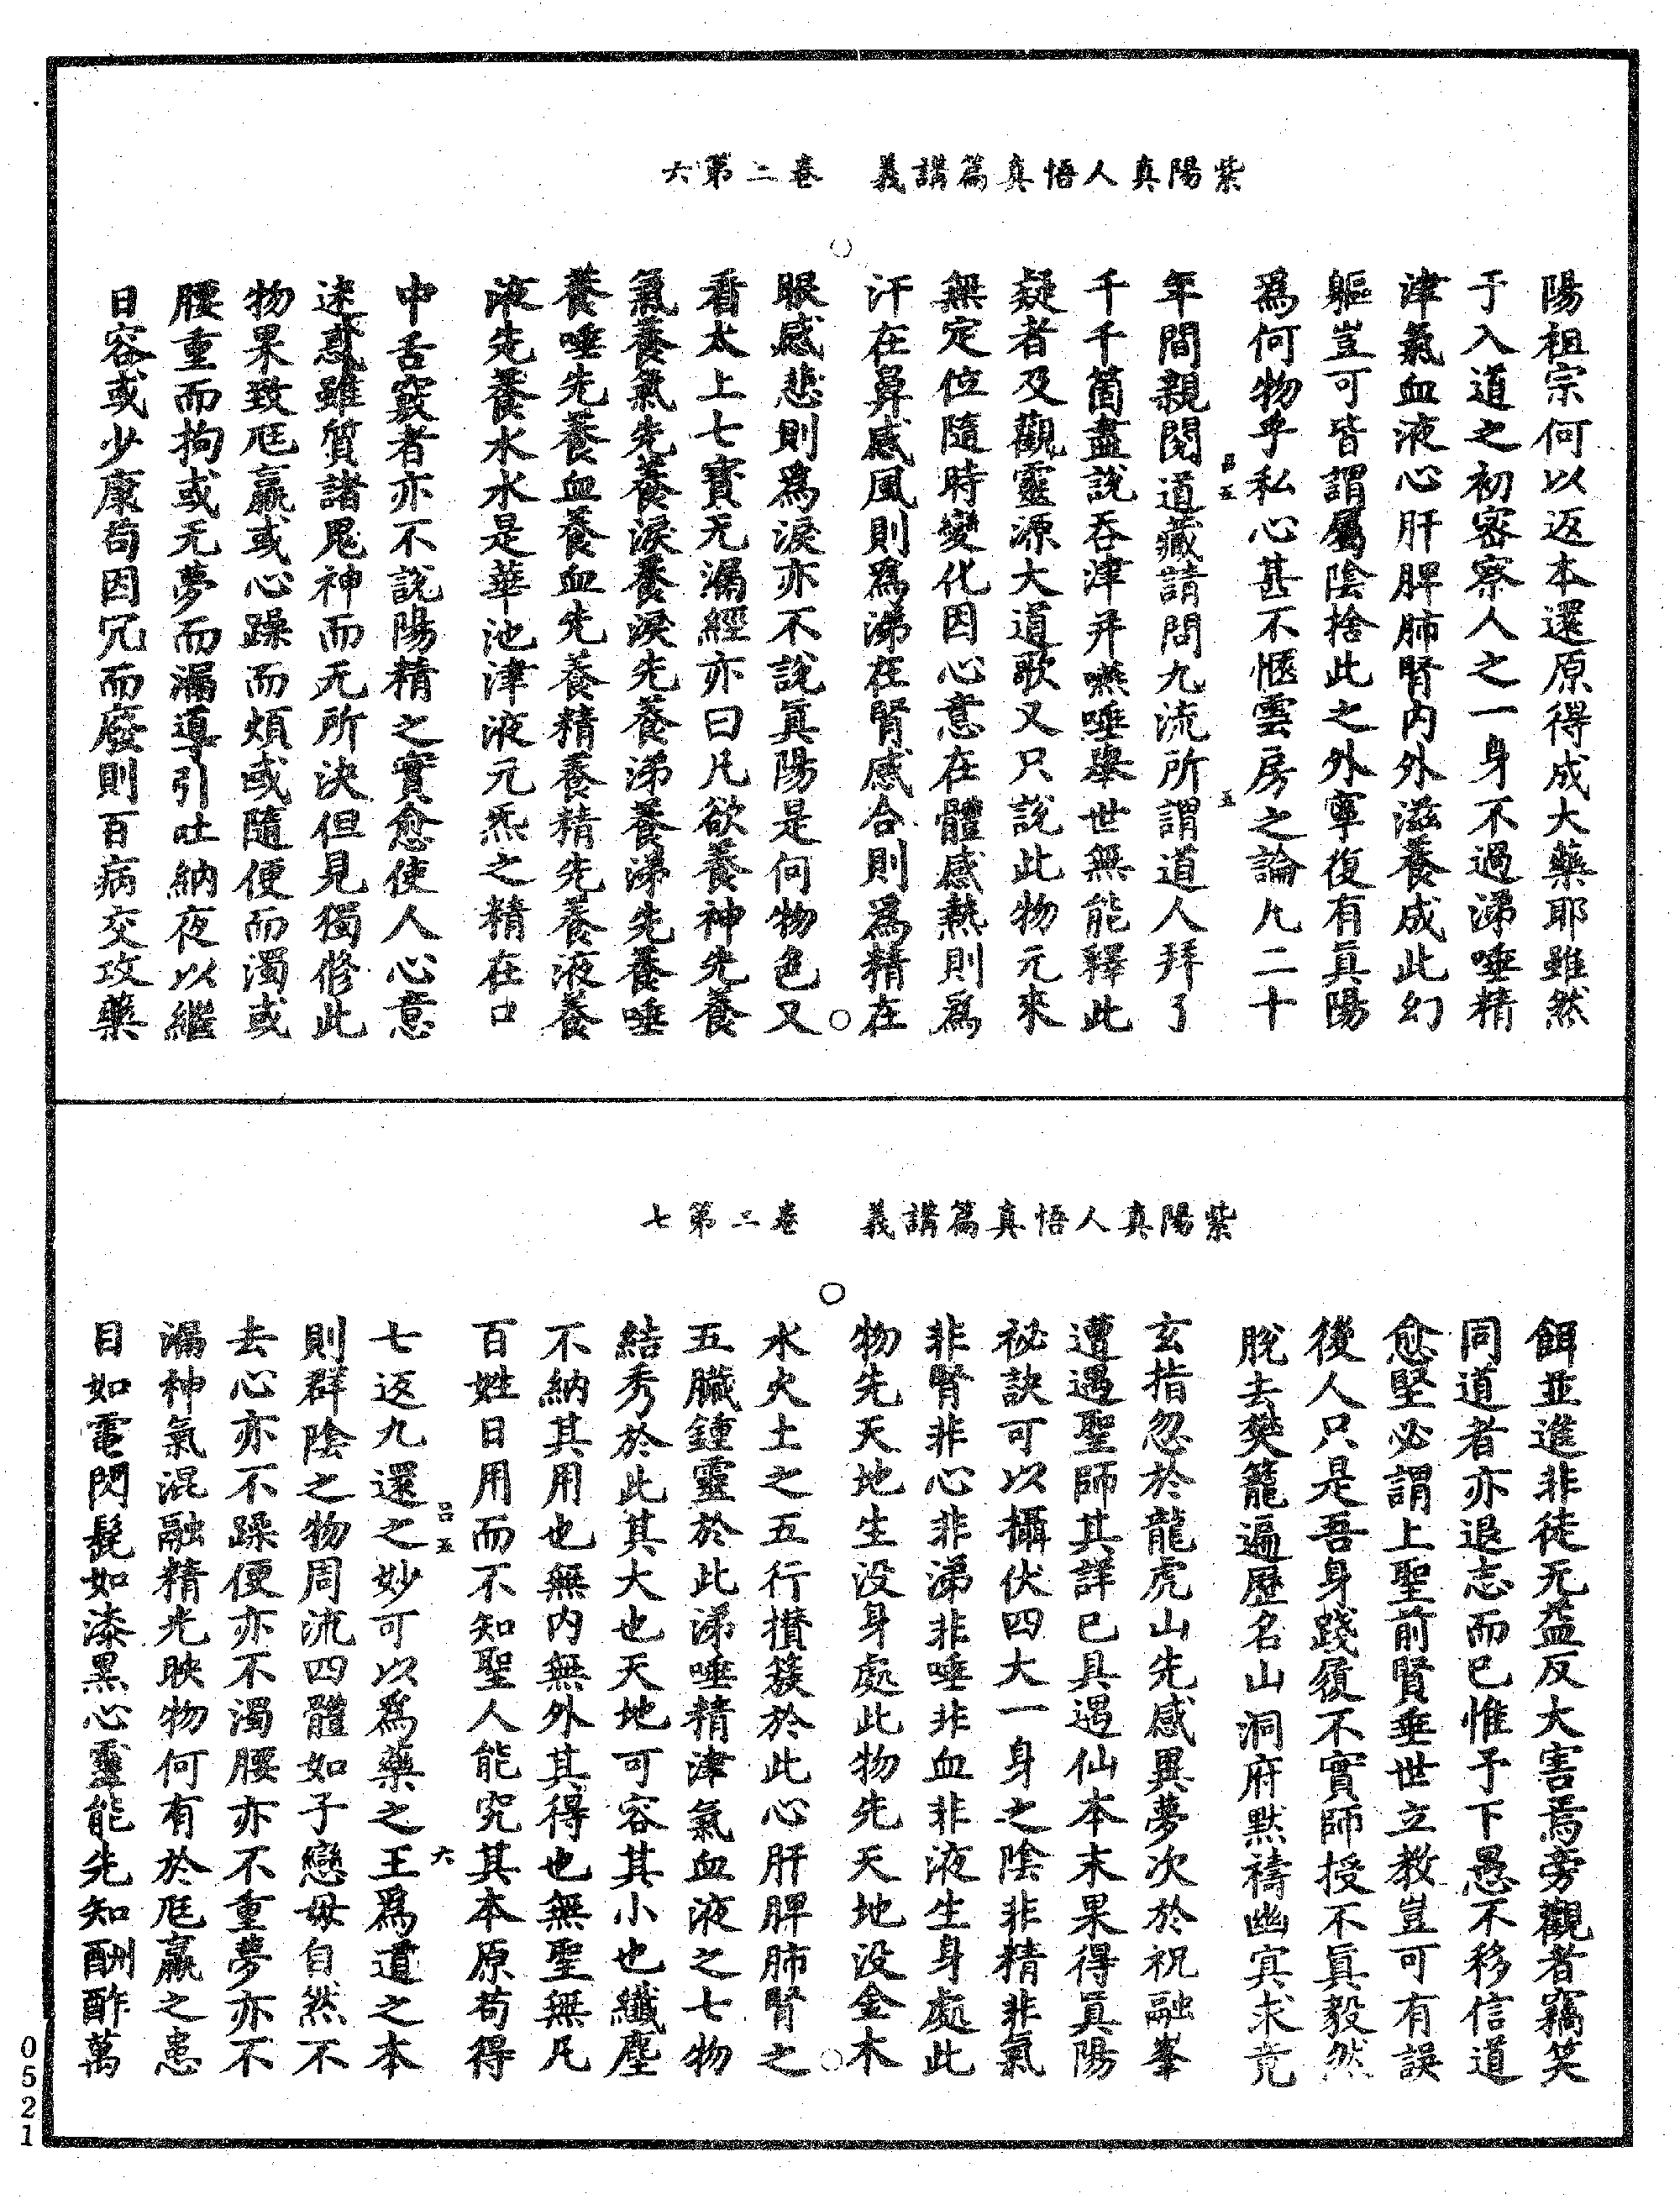 紫陽真人悟真篇講義　卷二第六
陽祖宗何以返本還原得成大藥耶雖然
于入道之初密察人之一身不過涕唾精
津氣血液心肝脾肺腎内外滋養成此幻
軀豈可皆謂屬陰捨此之外寧復有眞陽
爲何物乎私心甚不愜雲房之論凡二十
五
年間親閱道藏請問九流所謂道人拜了
千千箇盡說吞津并嚥唾舉世無能釋此
疑者及觀靈源大道歌又只說此物元來
無定位隨時變化因心意在體感熱則爲
汗在鼻感風則爲涕在腎感合則爲精在
眼感悲則爲淚亦不說眞陽是何物色又
看太上七寶无漏經亦曰凡欲養神先養
氣養氣先養淚養淚先養涕養涕先養唾
養唾先養血養血先養精養精先養液養
液先養水水是華池津液元炁之精在口
中舌竅者亦不說陽精之實愈使人心意
迷惑雖質諸鬼神而无所決但見獨修此
物果致尫羸或心躁而煩或隨便而濁或
腰重而拘或无夢而漏導引吐納夜以繼
日容或少康苟因冗而廢則百病交攻藥
紫陽真人悟真篇講義　卷二第七
餌並進非徒无益反大害焉旁觀者竊笑
同道者亦退志而已惟予下愚不移信道
愈堅必謂上聖前賢垂世立教豈可有誤
後人只是吾身踐履不實師授不眞毅然
脫去樊籠遍歷名山洞府默禱幽冥求竟
玄指忽於龍虎山先感異夢次於祝融峯
遭遇聖師其詳已具遇仙本末果得眞陽
祕訣可以攝伏四大一身之陰非精非氣
非腎非心非涕非唾非血非液生身處此
物先天地生没身處此物先天地没金木
水火土之五行攅簇於此心肝脾肺腎之
五臟鍾靈於此涕唾精津氣血液之七物
結秀於此其大也天地可容其小也纖塵
不納其用也無内無外其得也無聖無凡
百姓日用而不知聖人能究其本原苟得
六
七返九還之妙可以爲藥之王爲道之本
則群陰之物周流四體如子戀母自然不
去心亦不躁便亦不濁腰亦不重夢亦不
漏神氣混融精光映物何有於尫羸之患
目如電閃髭如漆黑心靈能先知酬酢萬
0521